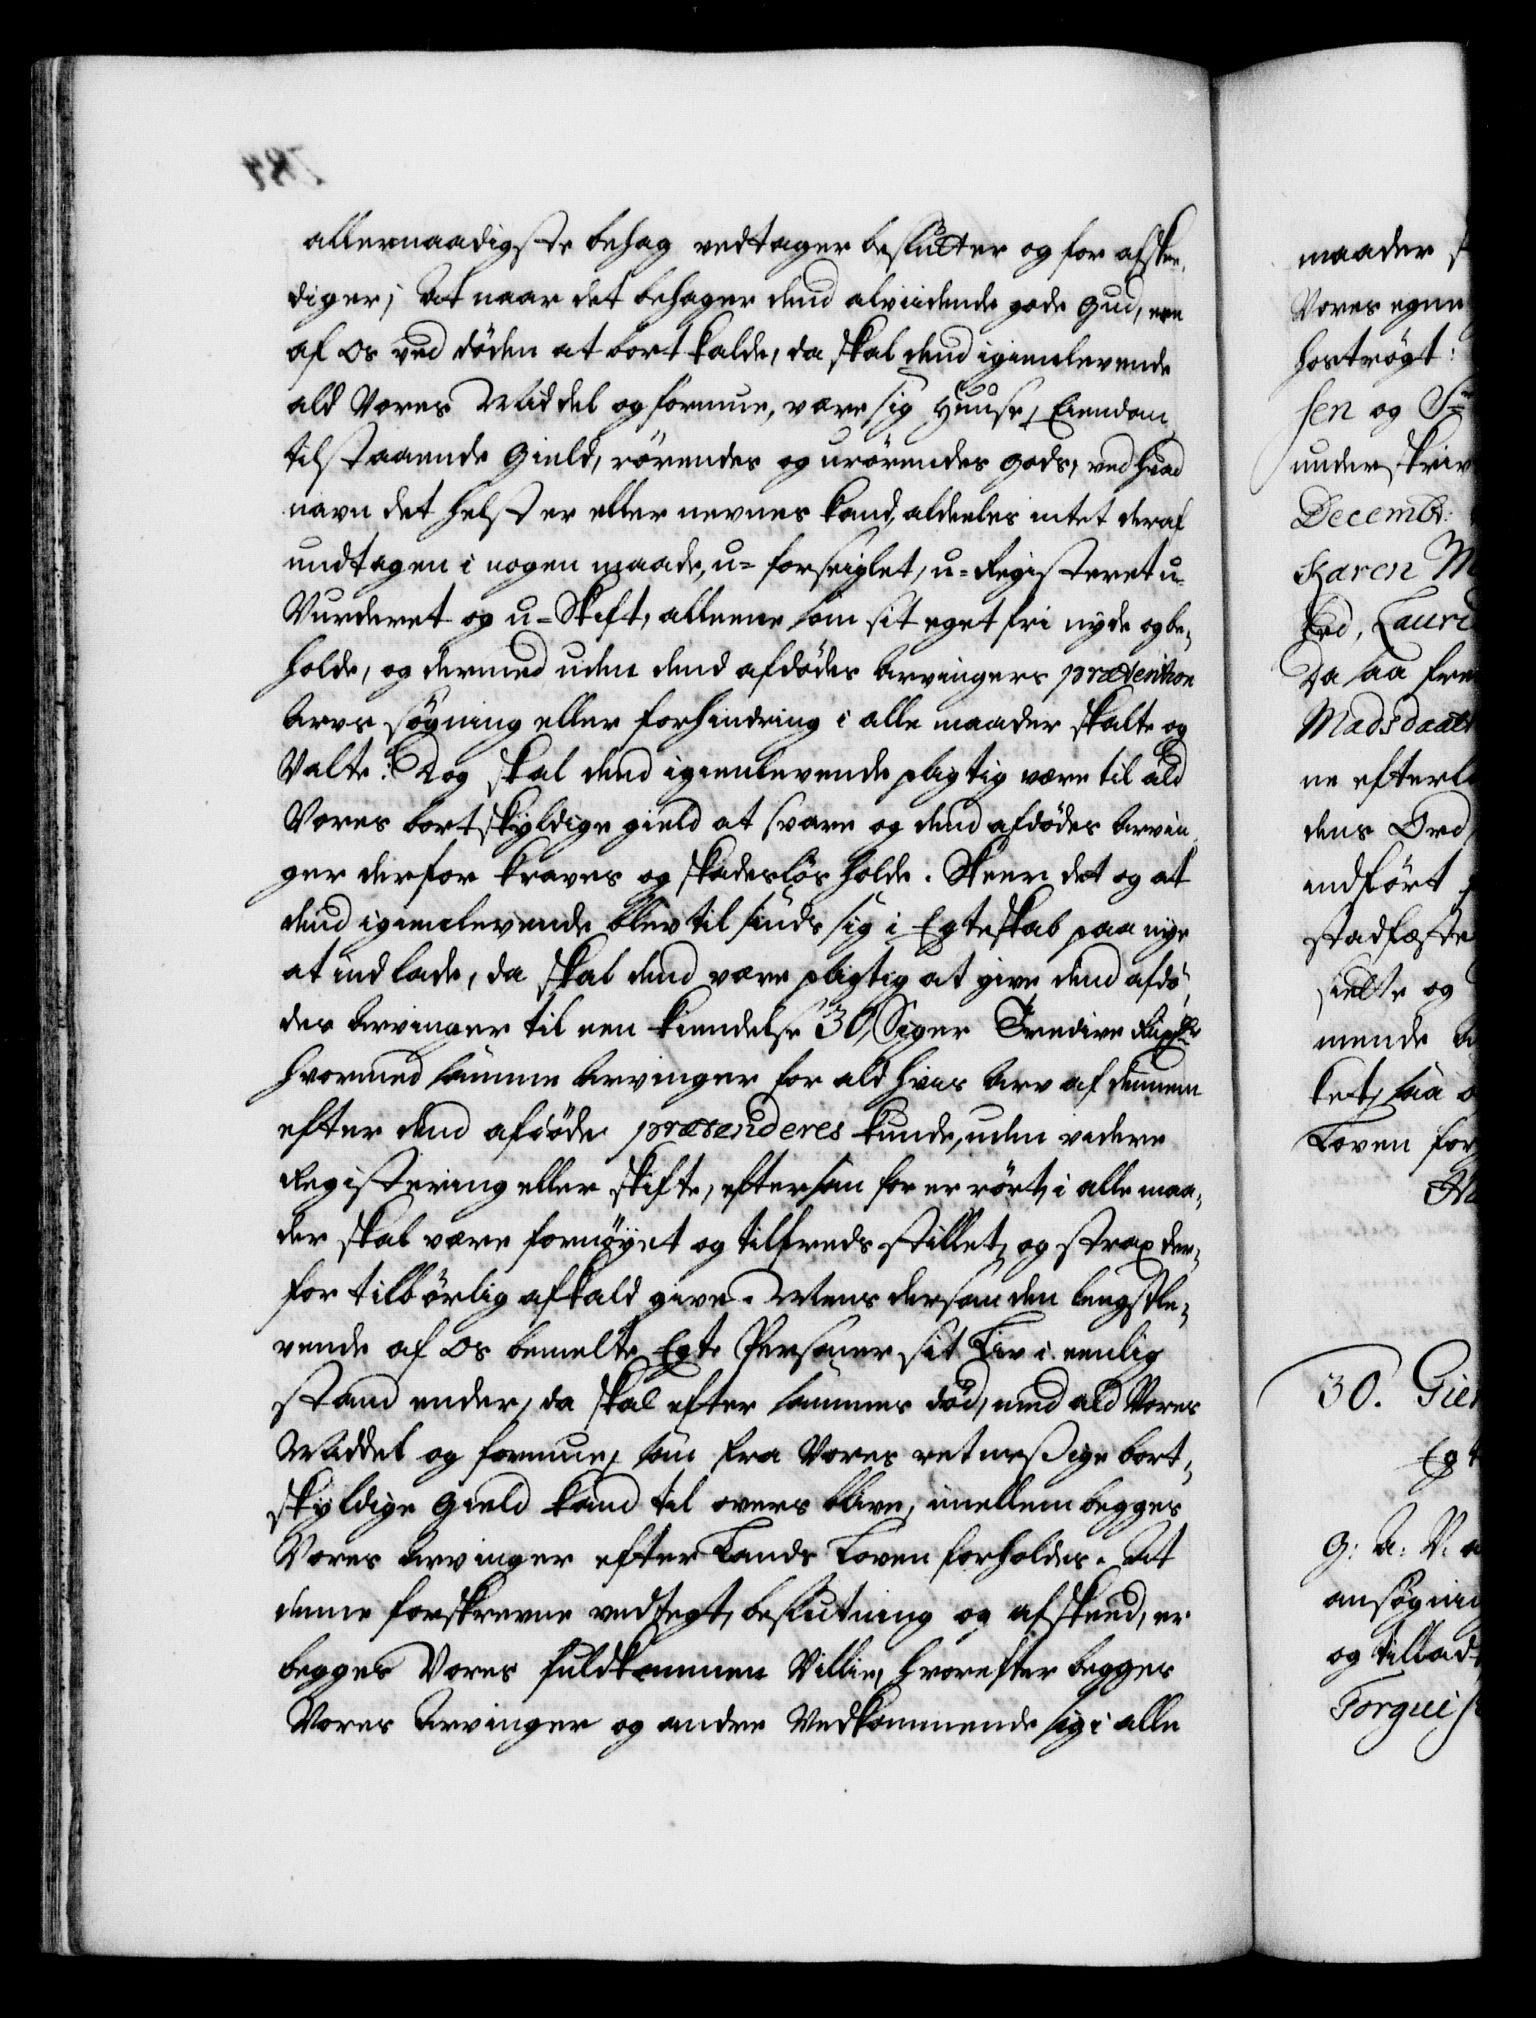 allernaadigste behag vedtager beslutter og for afskee-
diger; At naar det behager dend alviidende gode Gud, een
af os ved døden at bortkalde, da skal dend igienlevende
ald Vores Middel og formue, være sig Huuse, Eiendom
tilstaaende Gield, rørendes og urørendes Gods, ved hvad
navn det helst er eller nevnes kand, aldeeles intet deraf
undtagen i nogen maade, u-forseiglet, u-Registeret u-
Vurderet og u-Skift, alleene som sit eget fri nyde og be-
holde, og dermed uden dend afdødes Arvingers prætention
Arvs søgning eller forhindring i alle maader skalte og
Valte: Dog skal dend igienlevende pligtig være til ald
Vores bortskyldige gield at svare og dend afdødes Arvin-
ger derfor kraves og skadesløs holde. Skeer det og at
dend igienlevende blev til sinds sig i Egteskab paa nye
at indlade, da skal dend være pligtig at give dend afdø-
des Arvinger til een kiendelse 30, Siger Tredive Rixdr
hvormed samme Arvinger for ald hvis Arv af dennem
efter dend afdøde prætenderes kunde, uden videre
Registering eller skifte, eftersom for er rørt, i alle maa-
der skal være fornøyet og tilfreds stillet, og strax der-
for tilbørlig afkald give. Mens dersom den lengstle-
vende af os bemelte Egte Personer sit Liv i eenlig
stand ender, da skal efter sammes død, med ald Vores
Middel og formue, som fra Vores retmessige bort-
skyldige Gield kand til overs blive, imellem begges
Vores Arvinger efter Lands Loven forholdes. At
denne forskrevne vedtegt, beslutning og afskeed, er
begges Vores fuldkommen Villie, hvorefter begges
Vores Arvinger og andre Vedkommende sig i alle
maader
Vores egne
hostrøgt:
sen og Sr
underskriv
Decembr:
Karen M
Ord, Laurid
Da saa fre
Madsdaatt
ne efterle
dens Ord
indført
stadfæste
sielte og
mende
ket, saa
Loven for
30. Gien
Egt
G: A: V:
ansøgning
og tillad
Torgui